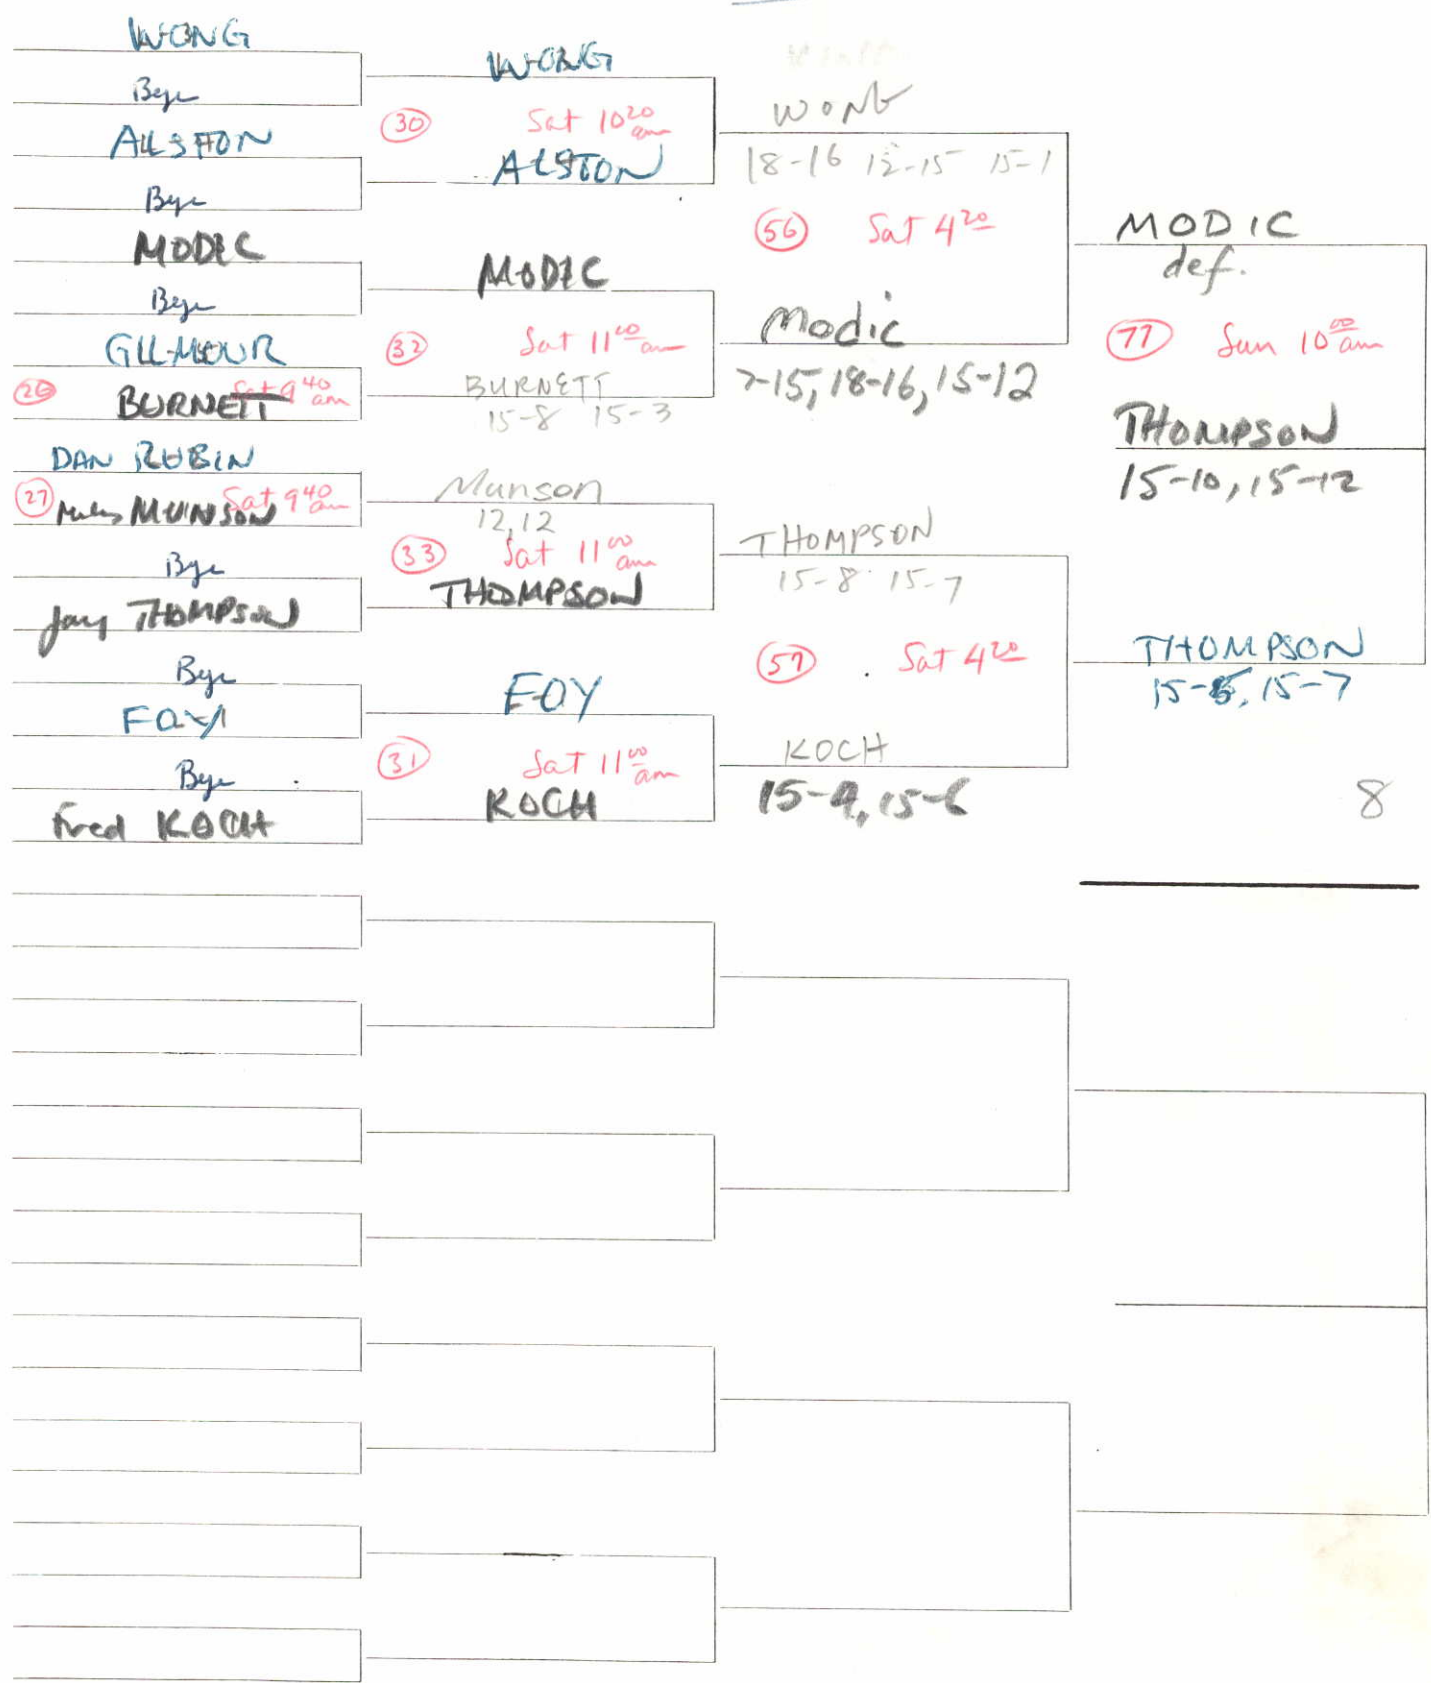 WONG
Bye
ALSTON
Bye
MODIC
Bye
GILMOUR
26 Sat 9 40 am
BURNETT
DAN RUBIN
27 Sat 9 40 am
MUNSON
Bye
THOMPSON
Bye
FOY
Bye
Fred KOCH
WONG
30 Sat 10 20 am
ALSTON
MODIC
32 Sat 11 00 am
BURNETT
15-8 15-3
Munson
12, 12
33 Sat 11 00 am
THOMPSON
FOY
31 Sat 11 00 am
KOCH
WONG
18-16 12-15 15-1
56 Sat 4 20
Modic
7-15, 18-16, 15-12
THOMPSON
15-8 15-7
57 Sat 4 20
KOCH
15-9, 15-6
MODIC
def.
77 Sun 10 00 am
THOMPSON
15-10, 15-12
THOMPSON
15-5, 15-7
8